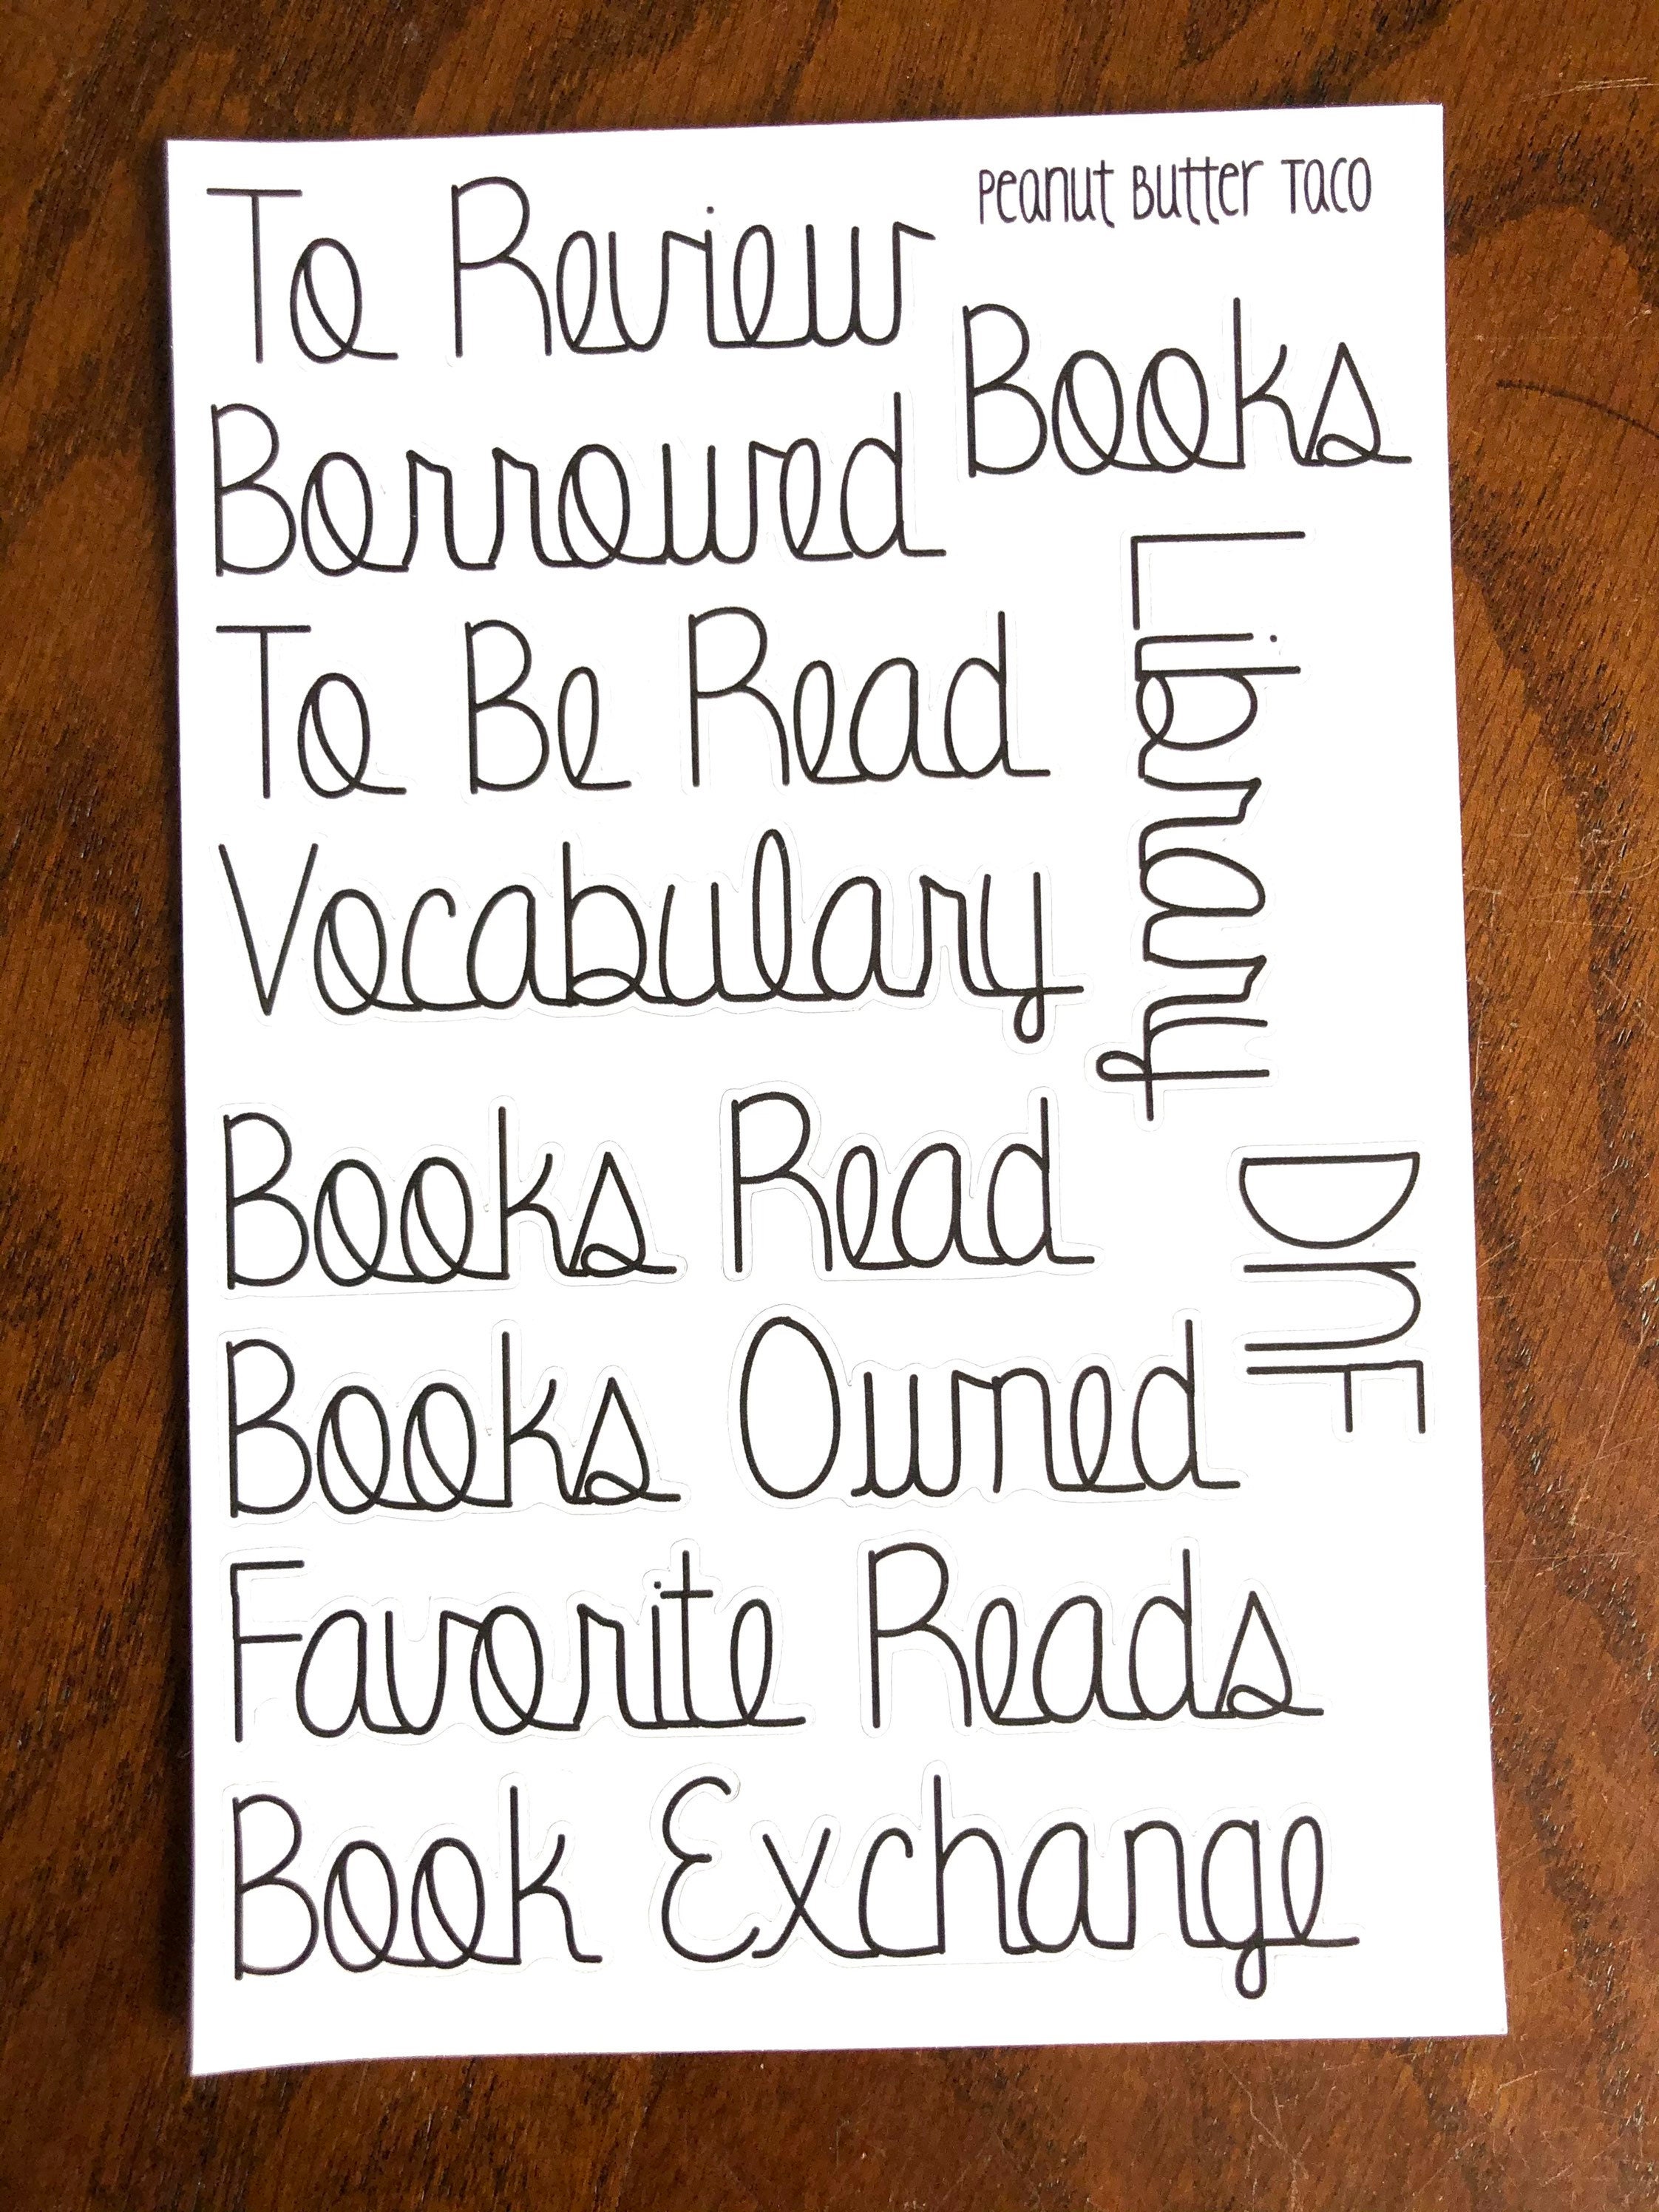 To Review
Peanut Butter Taco
Books
Borrowed
To Be Read
Library
Vocabulary
Books Read
DnF
Books Owned
Favorite Reads
Book Exchange